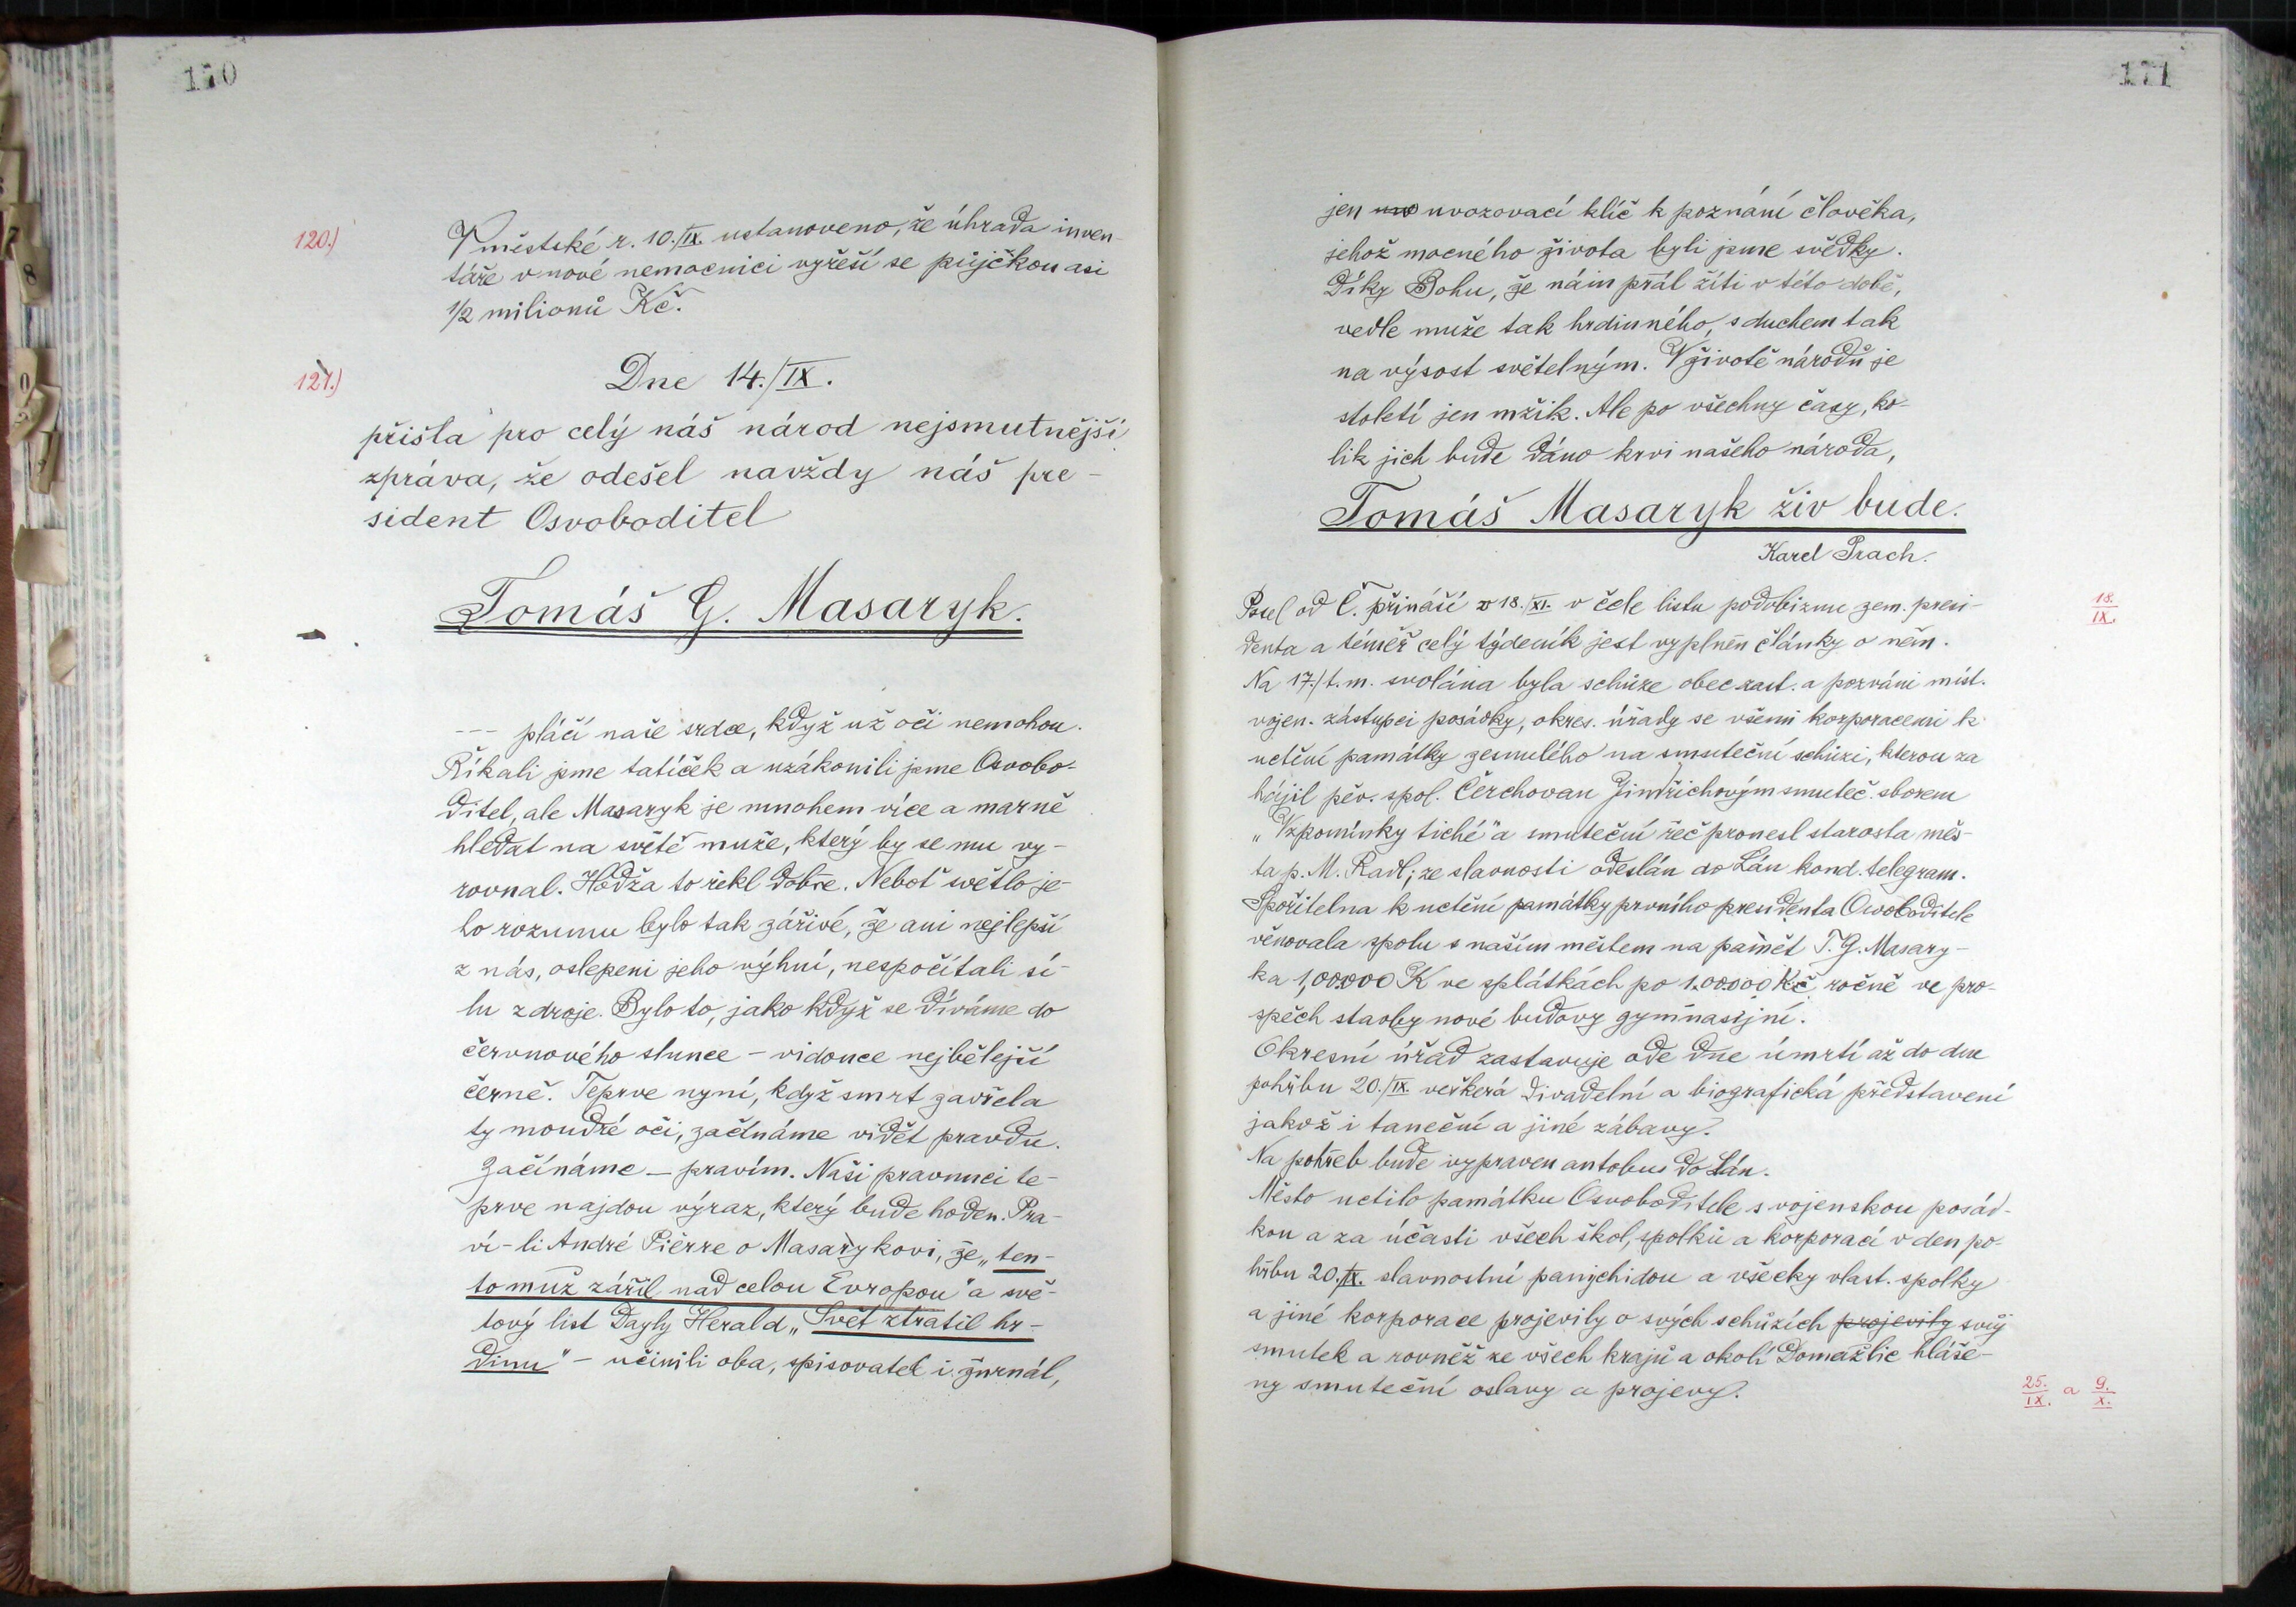 170
120.)
V městské r. 10./IX. ustanoveno, že úhrada inven-
táře v nové nemocnici vyřeší se půjčkou asi
1/2 milionů Kč.
121.)
Dne 14./IX.
přišla pro celý náš národ nejsmutnější
zpráva, že odešel navždy náš pre-
sident Osvoboditel
Tomáš G. Masaryk.
--- pláčí naše srdce, když už oči nemohou.
Říkali jsme tatíček a uzákonili jsme Osvobo-
ditel, ale Masaryk je mnohem více a marně
hledat na světě muže, který by se mu vy-
rovnal. Hodža to řekl dobře. Neboť světlo je-
ho rozumu bylo tak zářivé, že ani nejlepší
z nás, oslepeni jeho výhní, nespočítali sí-
lu zdroje. Bylo to, jako když se díváme do
červnového slunce - vidouce nejbělejší
černě. Teprve nyní, když smrt zavřela
ty moudré oči, začínáme vidět pravdu.
Začínáme - pravím. Naši pravnuci te-
prve najdou výraz, který bude hoden. Pra-
ví-li André Piérre o Masarykovi, že „ten-
to muž zářil nad celou Evropou" a svě-
tový list Dayly Herald „Svět ztratil hr-
dinu" - učinili oba, spisovatel i žurnál,
171
jen uvo uvozovací klíč k poznání člověka,
jehož mocného života byli jsme svědky.
Díky Bohu, že nám přál žíti v této době,
vedle muže tak hrdinného, s duchem tak
na výsost světelným. V životě národů je
století jen mžik. Ale po všechny časy, ko-
lik jich bude dáno krvi našeho národa,
Tomáš Masaryk živ bude.
Karel Prach.
Posel od Č. přináší v 18./XI. v čele listu podobiznu zem. presi-
denta a téměř celý týdeník jest vyplněn články o něm.
18.
IX.
Na 17./t.m. svolána byla schůze obec. zast. a pozváni míst.
vojen. zástupci posádky, okres. úřady se všemi korporacemi k
uctění památky zesnulého na smuteční schůzi, kterou za
hájil pěv. spol. Čerchovan Jindřichovým smuteč. sborem
„Vzpomínky tiché" a smuteční řeč pronesl starosta měs-
ta p. M. Radl; ze slavnosti odeslán do Lán kond. telegram.
Spořitelna k uctění památky prvního presidenta Osvoboditele
věnovala spolu s naším městem na pamět T. G. Masary-
ka 1,00.000 K ve splátkách po 1.00.000 Kč ročně ve pro-
spěch stavby nové budovy gymnasijní.
Okresní úřad zastavuje ode dne úmrtí až do dne
pohřbu 20./IX. veškerá divadelní a biografická představení
jakož i taneční a jiné zábavy.
Na pohřeb bude vypraven autobus do Lán.
Město uctilo památku Osvoboditele s vojenskou posád-
kou a za účasti všech škol, spolků a korporací v den po-
hřbu 20./IX. slavnostní panychidou a všecky vlast. spolky
a jiné korporace projevily o svých schůzích projevily svůj
smutek a rovněž ze všech krajů a okolí Domažlic hláše-
ny smuteční oslavy a projevy.
25.
IX. a 9.
X.